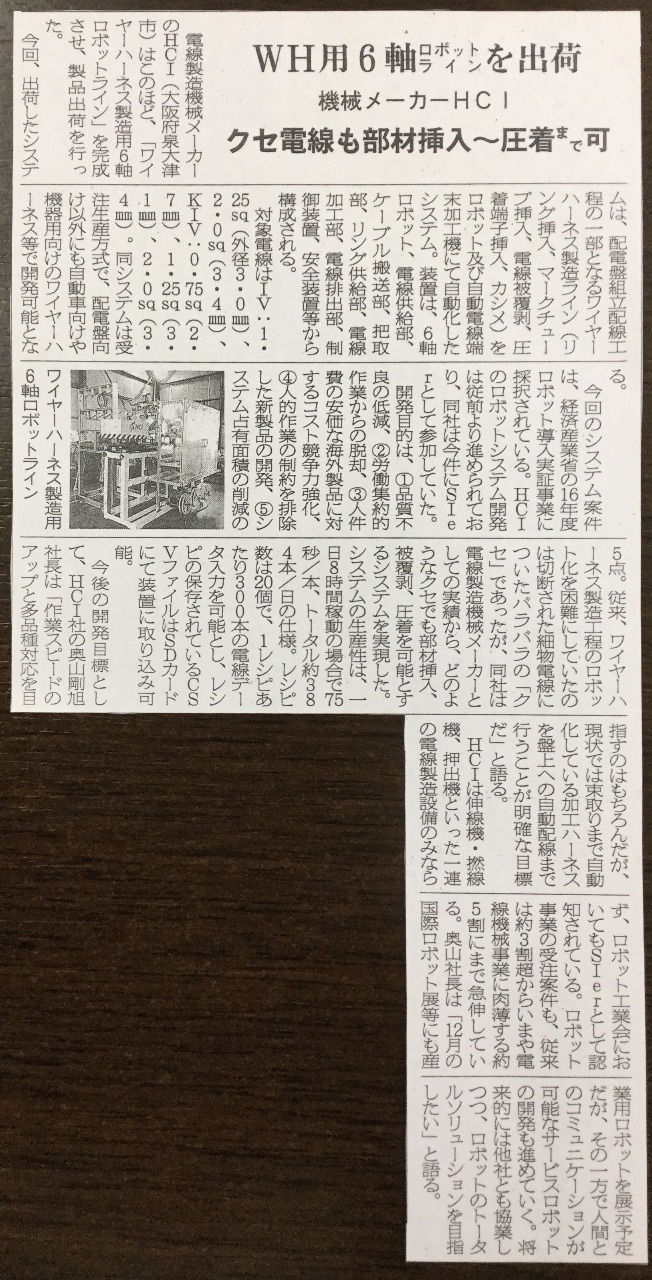 WH用6軸ロボットラインを出荷
機械メーカーHCI
クセ電線も部材挿入～圧着まで可
電線製造機械メーカー
のHCI（大阪府泉大津
市）はこのほど、「ワイ
ヤーハーネス製造用6軸
ロボットライン」を完成
させ、製品出荷を行っ
た。
今回、出荷したシステ
ムは、配電盤組立配線工
程の一部となるワイヤー
ハーネス製造ライン（リ
ング挿入、マークチュー
ブ挿入、電線被覆剥、圧
着端子挿入、カシメ）を
ロボット及び自動電線端
末加工機にて自動化した
システム。装置は、6軸
ロボット、電線供給部、
ケーブル搬送部、把取
部、リング供給部、電線
加工部、電線排出部、制
御装置、安全装置等から
構成される。
対象電線はIV：1・
25sq（外径3・0㎜）、
2・0sq（3・4㎜）
KIV：0・75sq（2・
7㎜）、1・25sq（3・
1㎜）、2・0sq（3・
4㎜）。同システムは受
注生産方式で、配電盤向
け以外にも自動車向けや
機器用向けのワイヤーハ
ーネス等で開発可能とな
る。
今回のシステム案件
は、経済産業省の16年度
ロボット導入実証事業に
採択されている。HCI
のロボットシステム開発
は従前より進められてお
り、同社は今件にSIe
rとして参加していた。
開発目的は、①品質不
良の低減、②労働集約的
作業からの脱却、③人件
費の安価な海外製品に対
するコスト競争力強化、
④人的作業の制約を排除
した新製品の開発、⑤シ
ステム占有面積の削減の
ワイヤーハーネス製造用
6軸ロボットライン
5点。従来、ワイヤーハ
ーネス製造工程のロボッ
ト化を困難にしていたの
は切断された細物電線に
ついたバラバラの「ク
セ」であったが、同社は
電線製造機械メーカーと
しての実績から、どのよ
うなクセでも部材挿入、
被覆剥、圧着を可能とす
るシステムを実現した。
システムの生産性は、一
日8時間稼動の場合で75
秒/本、トータル約38
4本/日の仕様。レシピ
数は20個で、1レシピあ
たり300本の電線デー
タ入力を可能とし、レシ
ピの保存されているCS
VファイルはSDカード
にて装置に取り込み可
能。
今後の開発目標とし
て、HCI社の奥山剛旭
社長は「作業スピードの
アップと多品種対応を目
指すのはもちろんだが、
現状では束取りまで自動
化している加工ハーネス
を盤上への自動配線まで
行うことが明確な目標
だ」と語る。
HCIは伸線機・撚線
機、押出機といった一連
の電線製造設備のみなら
ず、ロボット工業会にお
いてもSIerとして認
知されている。ロボット
事業の受注案件も、従来
は約3割超からいまや電
線機械事業に肉薄する約
5割にまで急伸してい
る。奥山社長は「12月の
国際ロボット展等にも産
業用ロボットを展示予定
だが、その一方で人間と
のコミュニケーションが
可能なサービスロボット
の開発も進めていく。将
来的には他社とも協業し
つつ、ロボットのトータ
ルソリューションを目指
したい」と語る。